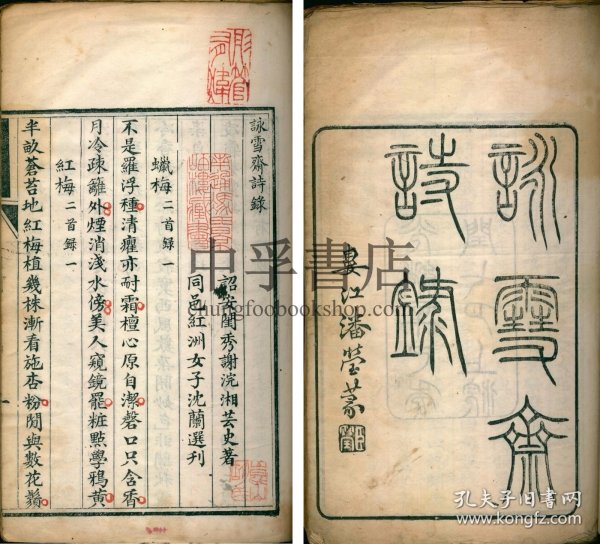 詠雪齋詩錄
詔安閨秀謝浣湘芸史著
同邑紅洲女子沈蘭選刊
蠟梅二首錄一
不是羅浮種清癯亦耐霜檀心原自潔磬口只含香
月冷疎籬外煙消淺水傍美人窺鏡罷粧點學鴉黃
紅梅二首錄一
半畝蒼苔地紅梅植幾株漸看施杏粉閒與數花鬚
詠雪齋
詩錄
婁江潘瑩篆
中孚書店
chungfoobookshop.com
孔夫子旧书网
www.kongfz.com